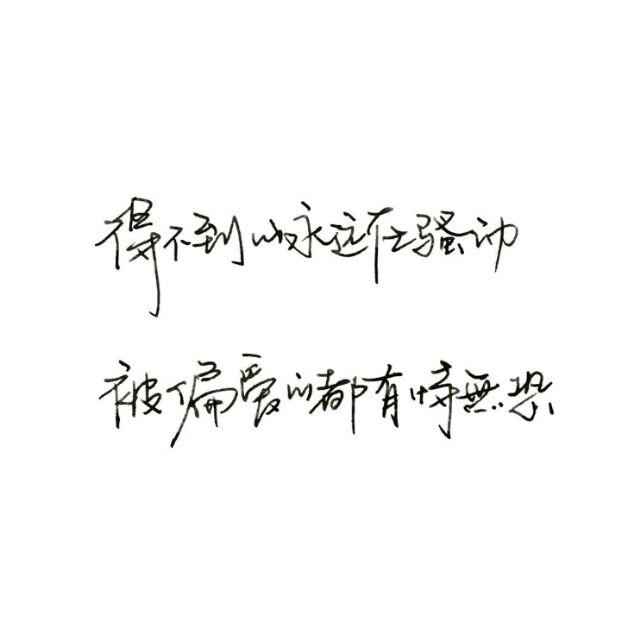 得不到的永远在骚动
被偏爱的都有恃無恐